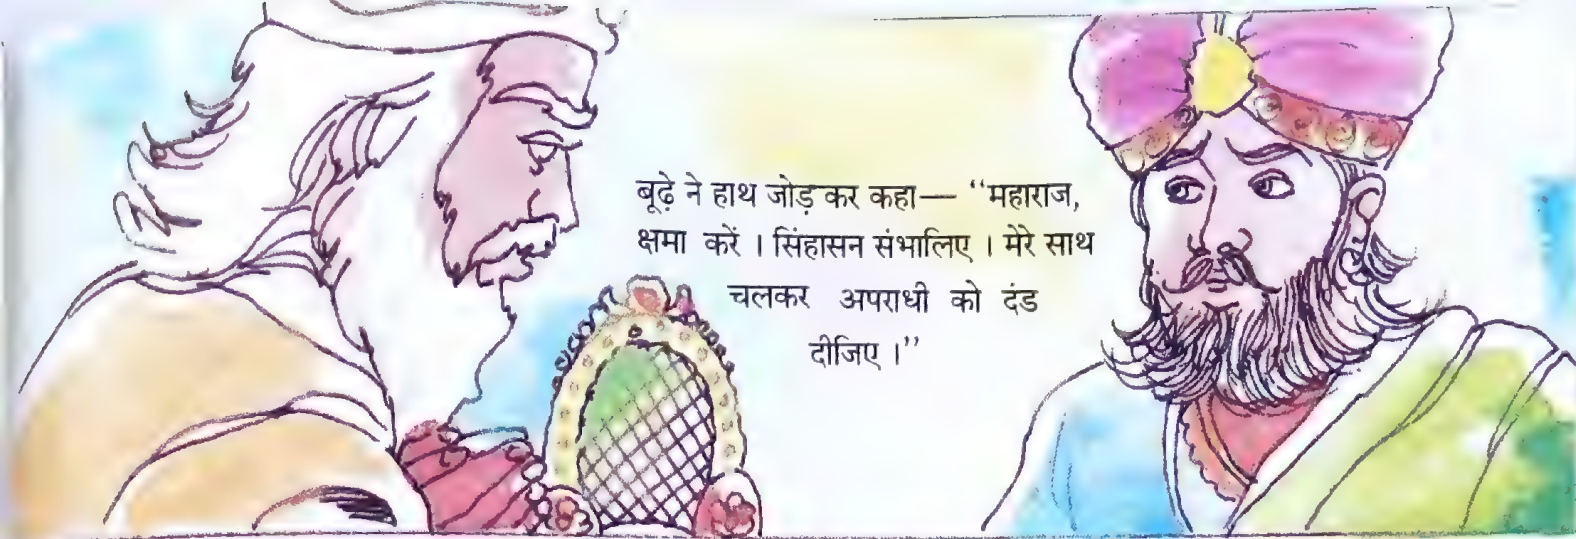 बूढ़े ने हाथ जोड़ कर कहा— “महाराज,
क्षमा करें । सिंहासन संभालिए । मेरे साथ
चलकर अपराधी को दंड
दीजिए ।”